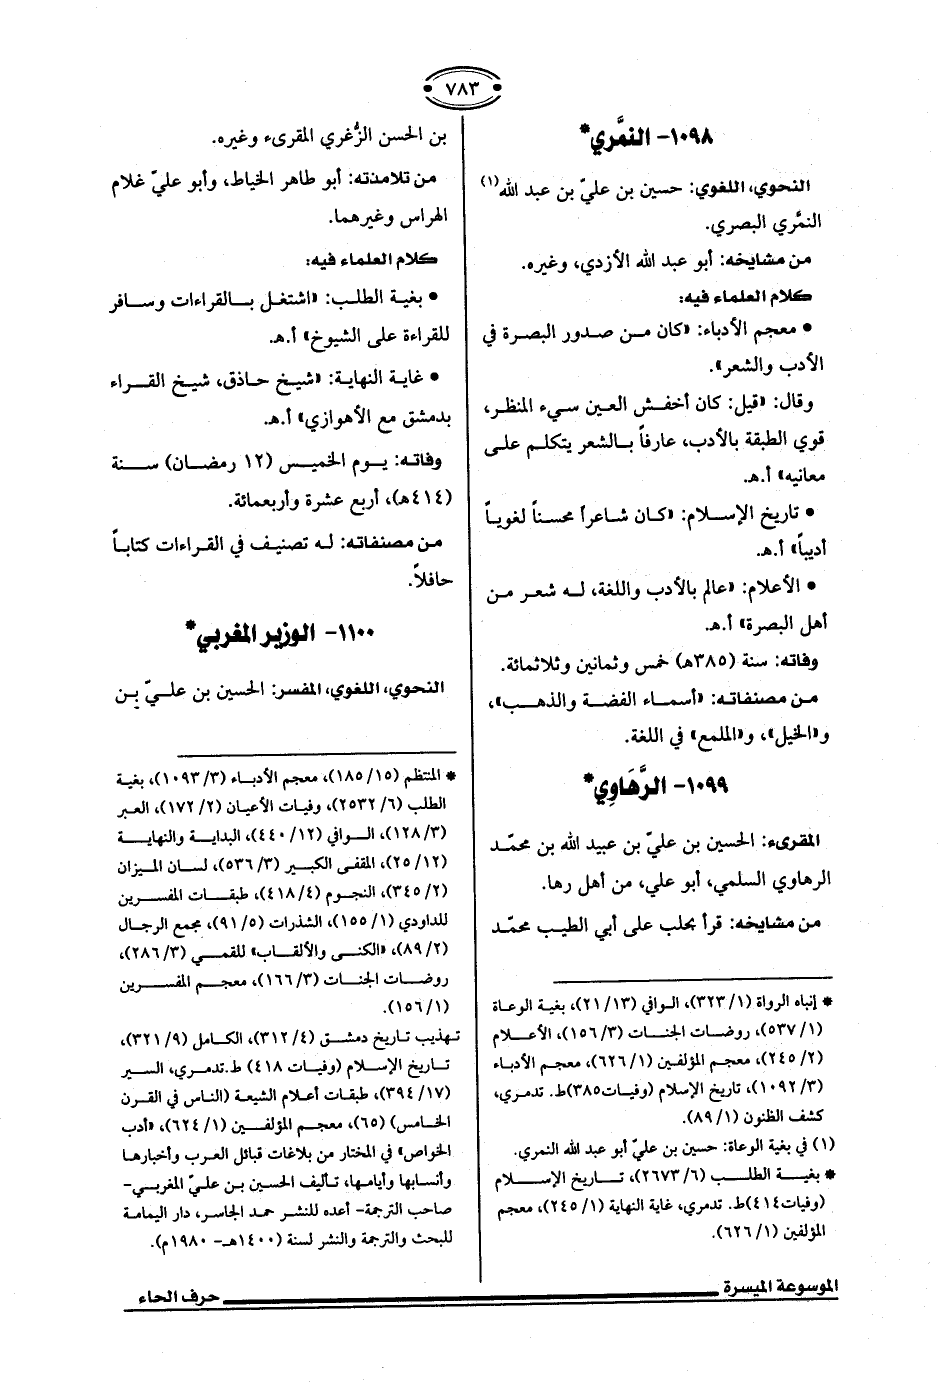 ٧٨٣
١٠٩٨- النمَّري*
النحوي، اللغوي: حسين بن عليّ بن عبد الله(١)
النمَّري البصري.
من مشايخه: أبو عبد الله الأزدي، وغيره.
كلام العلماء فيه:
• معجم الأدباء: «كان من صدور البصرة في
الأدب والشعر».
وقال: «قيل: كان أخفش العين سيء المنظر،
قوي الطبقة بالأدب، عارفاً بالشعر يتكلم على
معانيه» أ.هـ.
• تاريخ الإسلام: «كان شاعراً محسناً لغوياً
أديباً» أ.هـ.
• الأعلام: «عالم بالأدب واللغة، له شعر من
أهل البصرة» أ.هـ.
وفاته: سنة (٣٨٥هـ) خمس وثمانين وثلاثمائة.
من مصنفاته: «أسماء الفضة والذهب»،
و«الخيل»، و«الملمع» في اللغة.
١٠٩٩- الرَّهَاوِي*
المقرىء: الحسين بن عليّ بن عبيد الله بن محمّد
الرهاوي السلمي، أبو علي، من أهل رها.
من مشايخه: قرأ بحلب على أبي الطيب محمّد
* إنباه الرواة (١/ ٣٢٣)، الوافي (١٣/ ٢١)، بغية الوعاة
(١/ ٥٣٧)، روضات الجنات (٣/ ١٥٦)، الأعلام
(٢/ ٢٤٥)، معجم المؤلفين (١/ ٦٢٦)، معجم الأدباء
(٣/ ١٠٩٢)، تاريخ الإسلام (وفيات٣٨٥)ط. تدمري،
كشف الظنون (١/ ٨٩).
(١) في بغية الوعاة: حسين بن عليّ أبو عبد الله النمري.
* بغية الطلب (٦/ ٢٦٧٣)، تاريخ الإسلام
(وفيات٤١٤)ط. تدمري، غاية النهاية (١/ ٢٤٥)، معجم
المؤلفين (١/ ٦٢٦).
بن الحسن الزُّغري المقرىء وغيره.
من تلامذته: أبو طاهر الخياط، وأبو عليّ غلام
الهراس وغيرهما.
كلام العلماء فيه:
• بغية الطلب: «اشتغل بالقراءات وسافر
للقراءة على الشيوخ» أ.هـ.
• غاية النهاية: «شيخ حاذق، شيخ القراء
بدمشق مع الأهوازي» أ.هـ.
وفاته: يوم الخميس (١٢ رمضان) سنة
(٤١٤هـ)، أربع عشرة وأربعمائة.
من مصنفاته: له تصنيف في القراءات كتاباً
حافلاً.
١١٠٠- الوزير المغربي*
النحوي، اللغوي، المفسر: الحسين بن عليّ بن
* المنتظم (١٥/ ١٨٥)، معجم الأدباء (٣/ ١٠٩٣)، بغية
الطلب (٦/ ٢٥٣٢)، وفيات الأعيان (٢/ ١٧٢)، العبر
(٣/ ١٢٨)، الوافي (١٢/ ٤٤٠)، البداية والنهاية
(١٢/ ٢٥)، المقفى الكبير (٣/ ٥٣٦)، لسان الميزان
(٢/ ٣٤٥)، النجوم (٤/ ٤١٨)، طبقات المفسرين
للداودي (١/ ١٥٥)، الشذرات (٥/ ٩١)، مجمع الرجال
(٢/ ٨٩)، «الكنى والألقاب» للقمي (٣/ ٢٨٦)،
روضات الجنات (٣/ ١٦٦)، معجم المفسرين
(١/ ١٥٦).
تهذيب تاريخ دمشق (٤/ ٣١٢)، الكامل (٩/ ٣٢١)،
تاريخ الإسلام (وفيات ٤١٨) ط.تدمري، السير
(١٧/ ٣٩٤)، طبقات أعلام الشيعة (الناس في القرن
الخامس) (٦٥)، معجم المؤلفين (١/ ٦٢٤)، «أدب
الخواص» في المختار من بلاغات قبائل العرب وأخبارها
وأنسابها وأيامها، تأليف الحسين بن عليّ المغربي-
صاحب الترجمة- أعده للنشر حمد الجاسر، دار اليمامة
للبحث والترجمة والنشر لسنة (١٤٠٠هـ- ١٩٨٠م).
الموسوعة الميسرة
حرف الحاء